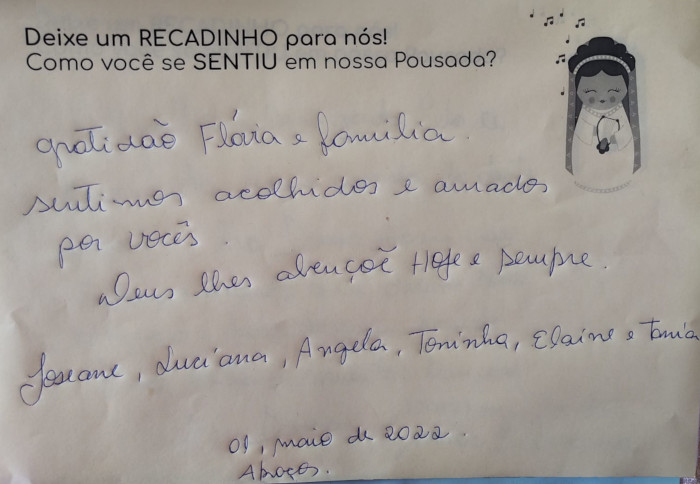 Deixe um RECADINHO para nós!
Como você se SENTIU em nossa Pousada?
gratidão Flávia e familia.
sentimos acolhidos e amados
por vocês.
Deus lhes abençoê Hoje e sempre.
Joseane, Luciana, Angela, Toninha, Elaine e Tania
01, maio de 2022.
Abraços.